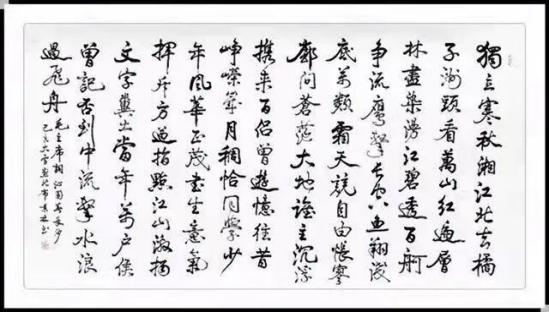 獨立寒秋湘江北去橘
子洲頭看萬山紅遍層
林盡染漫江碧透百舸
争流鷹擊長空魚翔淺
底萬類霜天競自由悵寥
廓問蒼茫大地誰主沉浮
携来百侣曾遊憶往昔
峥嵘歲月稠恰同學少
年風華正茂書生意氣
揮斥方遒指點江山激揚
文字糞土當年萬户侯
曾記否到中流擊水浪
遏飛舟
毛主席詞沁園春長沙
己亥大雪